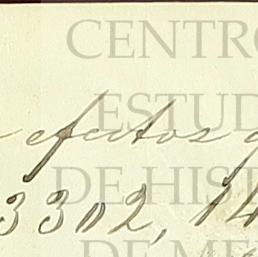 CENTRO
ESTUD
efectos
DE HIST
3302, 14
DE ME